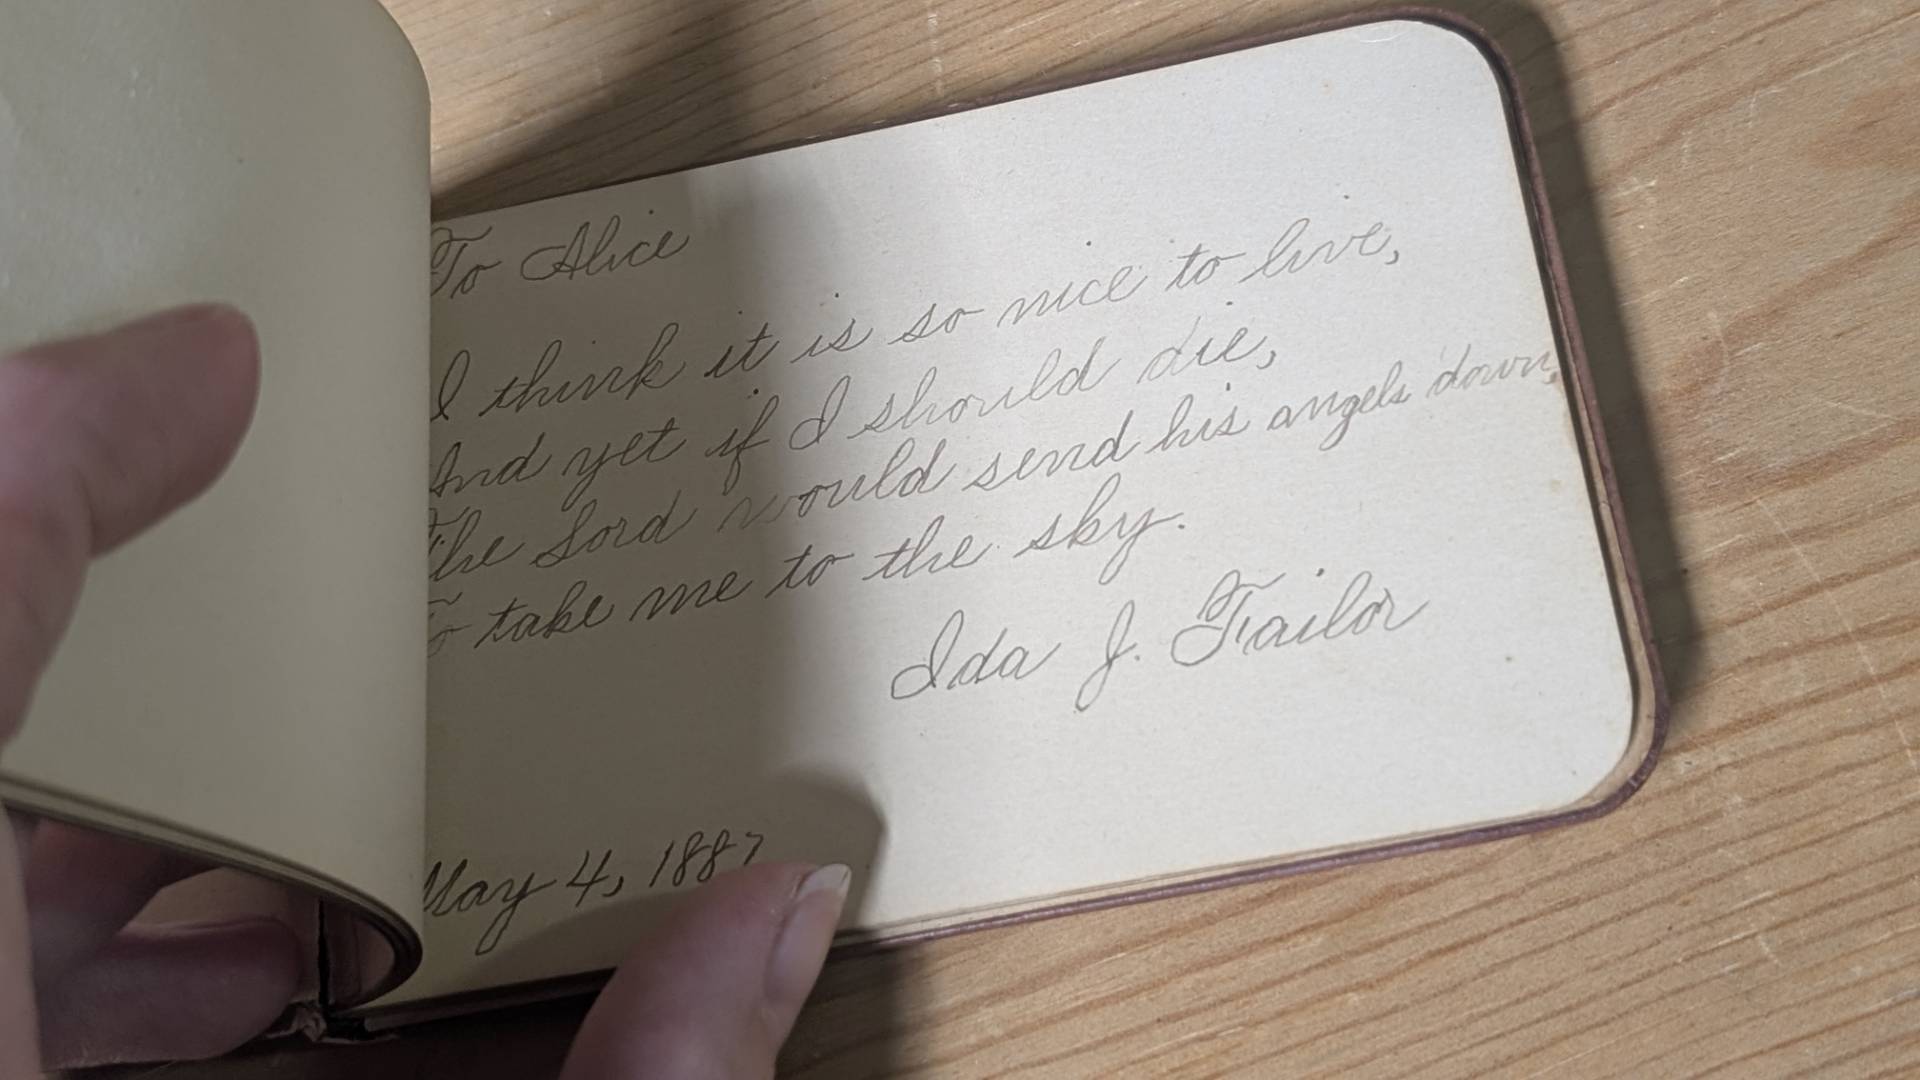 To Alice
I think it is so nice to live,
And yet if I should die,
The Lord would send his angels down,
To take me to the sky.
Ida J. Tailor
May 4, 1887